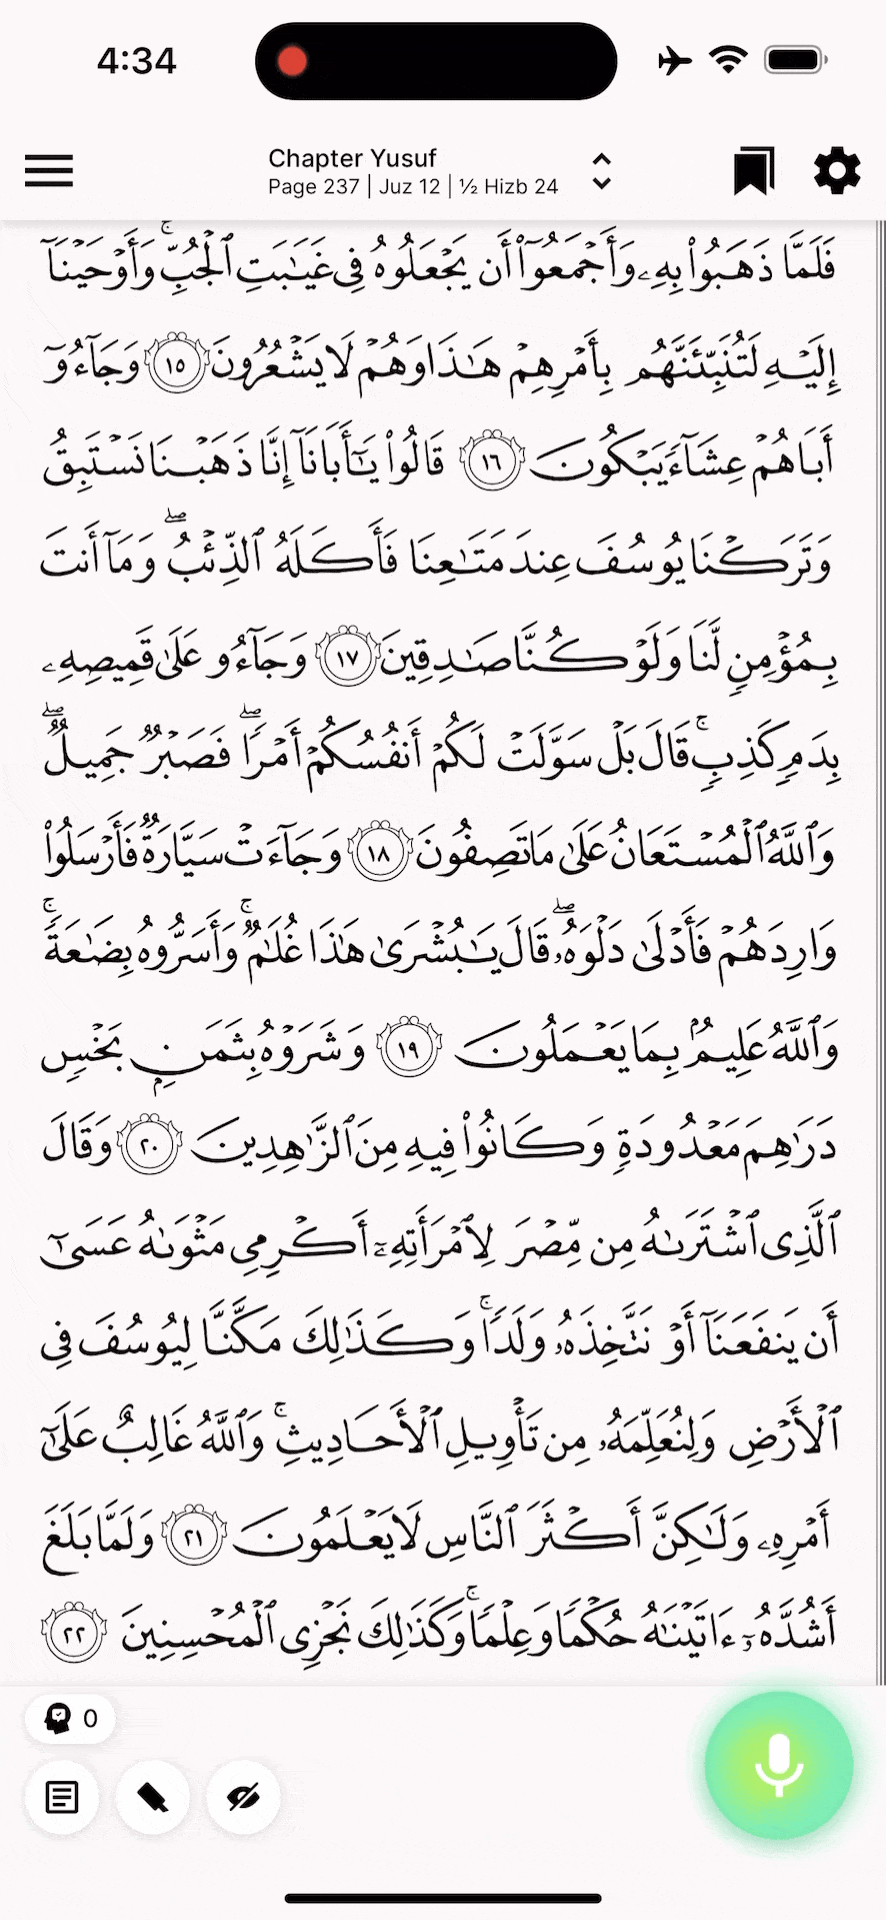 4:34
Chapter Yusuf
Page 237 | Juz 12 | ½ Hizb 24
فَلَمَّا ذَهَبُوا۟ بِهِۦ وَأَجْمَعُوٓا۟ أَن يَجْعَلُوهُ فِى غَيَـٰبَتِ ٱلْجُبِّ ۚ وَأَوْحَيْنَآ
إِلَيْهِ لَتُنَبِّئَنَّهُم بِأَمْرِهِمْ هَـٰذَا وَهُمْ لَا يَشْعُرُونَ ١٥ وَجَآءُوٓ
أَبَاهُمْ عِشَآءً يَبْكُونَ ١٦ قَالُوا۟ يَـٰٓأَبَانَآ إِنَّا ذَهَبْنَا نَسْتَبِقُ
وَتَرَكْنَا يُوسُفَ عِندَ مَتَـٰعِنَا فَأَكَلَهُ ٱلذِّئْبُ ۖ وَمَآ أَنتَ
بِمُؤْمِنٍ لَّنَا وَلَوْ كُنَّا صَـٰدِقِينَ ١٧ وَجَآءُو عَلَىٰ قَمِيصِهِۦ
بِدَمٍ كَذِبٍ ۚ قَالَ بَلْ سَوَّلَتْ لَكُمْ أَنفُسُكُمْ أَمْرًا ۖ فَصَبْرٌ جَمِيلٌ ۖ
وَٱللَّهُ ٱلْمُسْتَعَانُ عَلَىٰ مَا تَصِفُونَ ١٨ وَجَآءَتْ سَيَّارَةٌ فَأَرْسَلُوا۟
وَارِدَهُمْ فَأَدْلَىٰ دَلْوَهُۥ ۖ قَالَ يَـٰبُشْرَىٰ هَـٰذَا غُلَـٰمٌ ۚ وَأَسَرُّوهُ بِضَـٰعَةً ۚ
وَٱللَّهُ عَلِيمٌۢ بِمَا يَعْمَلُونَ ١٩ وَشَرَوْهُ بِثَمَنٍۭ بَخْسٍ
دَرَٰهِمَ مَعْدُودَةٍ وَكَانُوا۟ فِيهِ مِنَ ٱلزَّٰهِدِينَ ٢٠ وَقَالَ
ٱلَّذِى ٱشْتَرَىٰهُ مِن مِّصْرَ لِٱمْرَأَتِهِۦٓ أَكْرِمِى مَثْوَىٰهُ عَسَىٰٓ
أَن يَنفَعَنَآ أَوْ نَتَّخِذَهُۥ وَلَدًا ۚ وَكَذَٰلِكَ مَكَّنَّا لِيُوسُفَ فِى
ٱلْأَرْضِ وَلِنُعَلِّمَهُۥ مِن تَأْوِيلِ ٱلْأَحَادِيثِ ۚ وَٱللَّهُ غَالِبٌ عَلَىٰٓ
أَمْرِهِۦ وَلَـٰكِنَّ أَكْثَرَ ٱلنَّاسِ لَا يَعْلَمُونَ ٢١ وَلَمَّا بَلَغَ
أَشُدَّهُۥٓ ءَاتَيْنَـٰهُ حُكْمًا وَعِلْمًا ۚ وَكَذَٰلِكَ نَجْزِى ٱلْمُحْسِنِينَ ٢٢
0